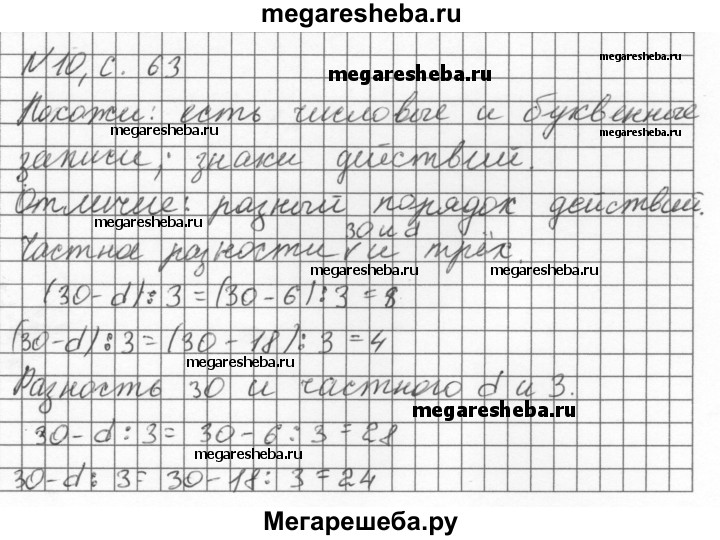 megaresheba.ru
№10, с. 63
megaresheba.ru
megaresheba.ru
Похожи: есть числовые и буквенные
megaresheba.ru
megaresheba.ru
записи; знаки действий.
Отличие: разный порядок действий.
megaresheba.ru
30 и d
Частное разности √ и трёх.
megaresheba.ru
megaresheba.ru
(30-d):3=(30-6):3=8
(30-d):3=(30-18):3=4
megaresheba.ru
Разность 30 и частного d и 3.
megaresheba.ru
30-d:3=30-6:3=28
megaresheba.ru
30-d:3=30-18:3=24
Мегарешеба.ру